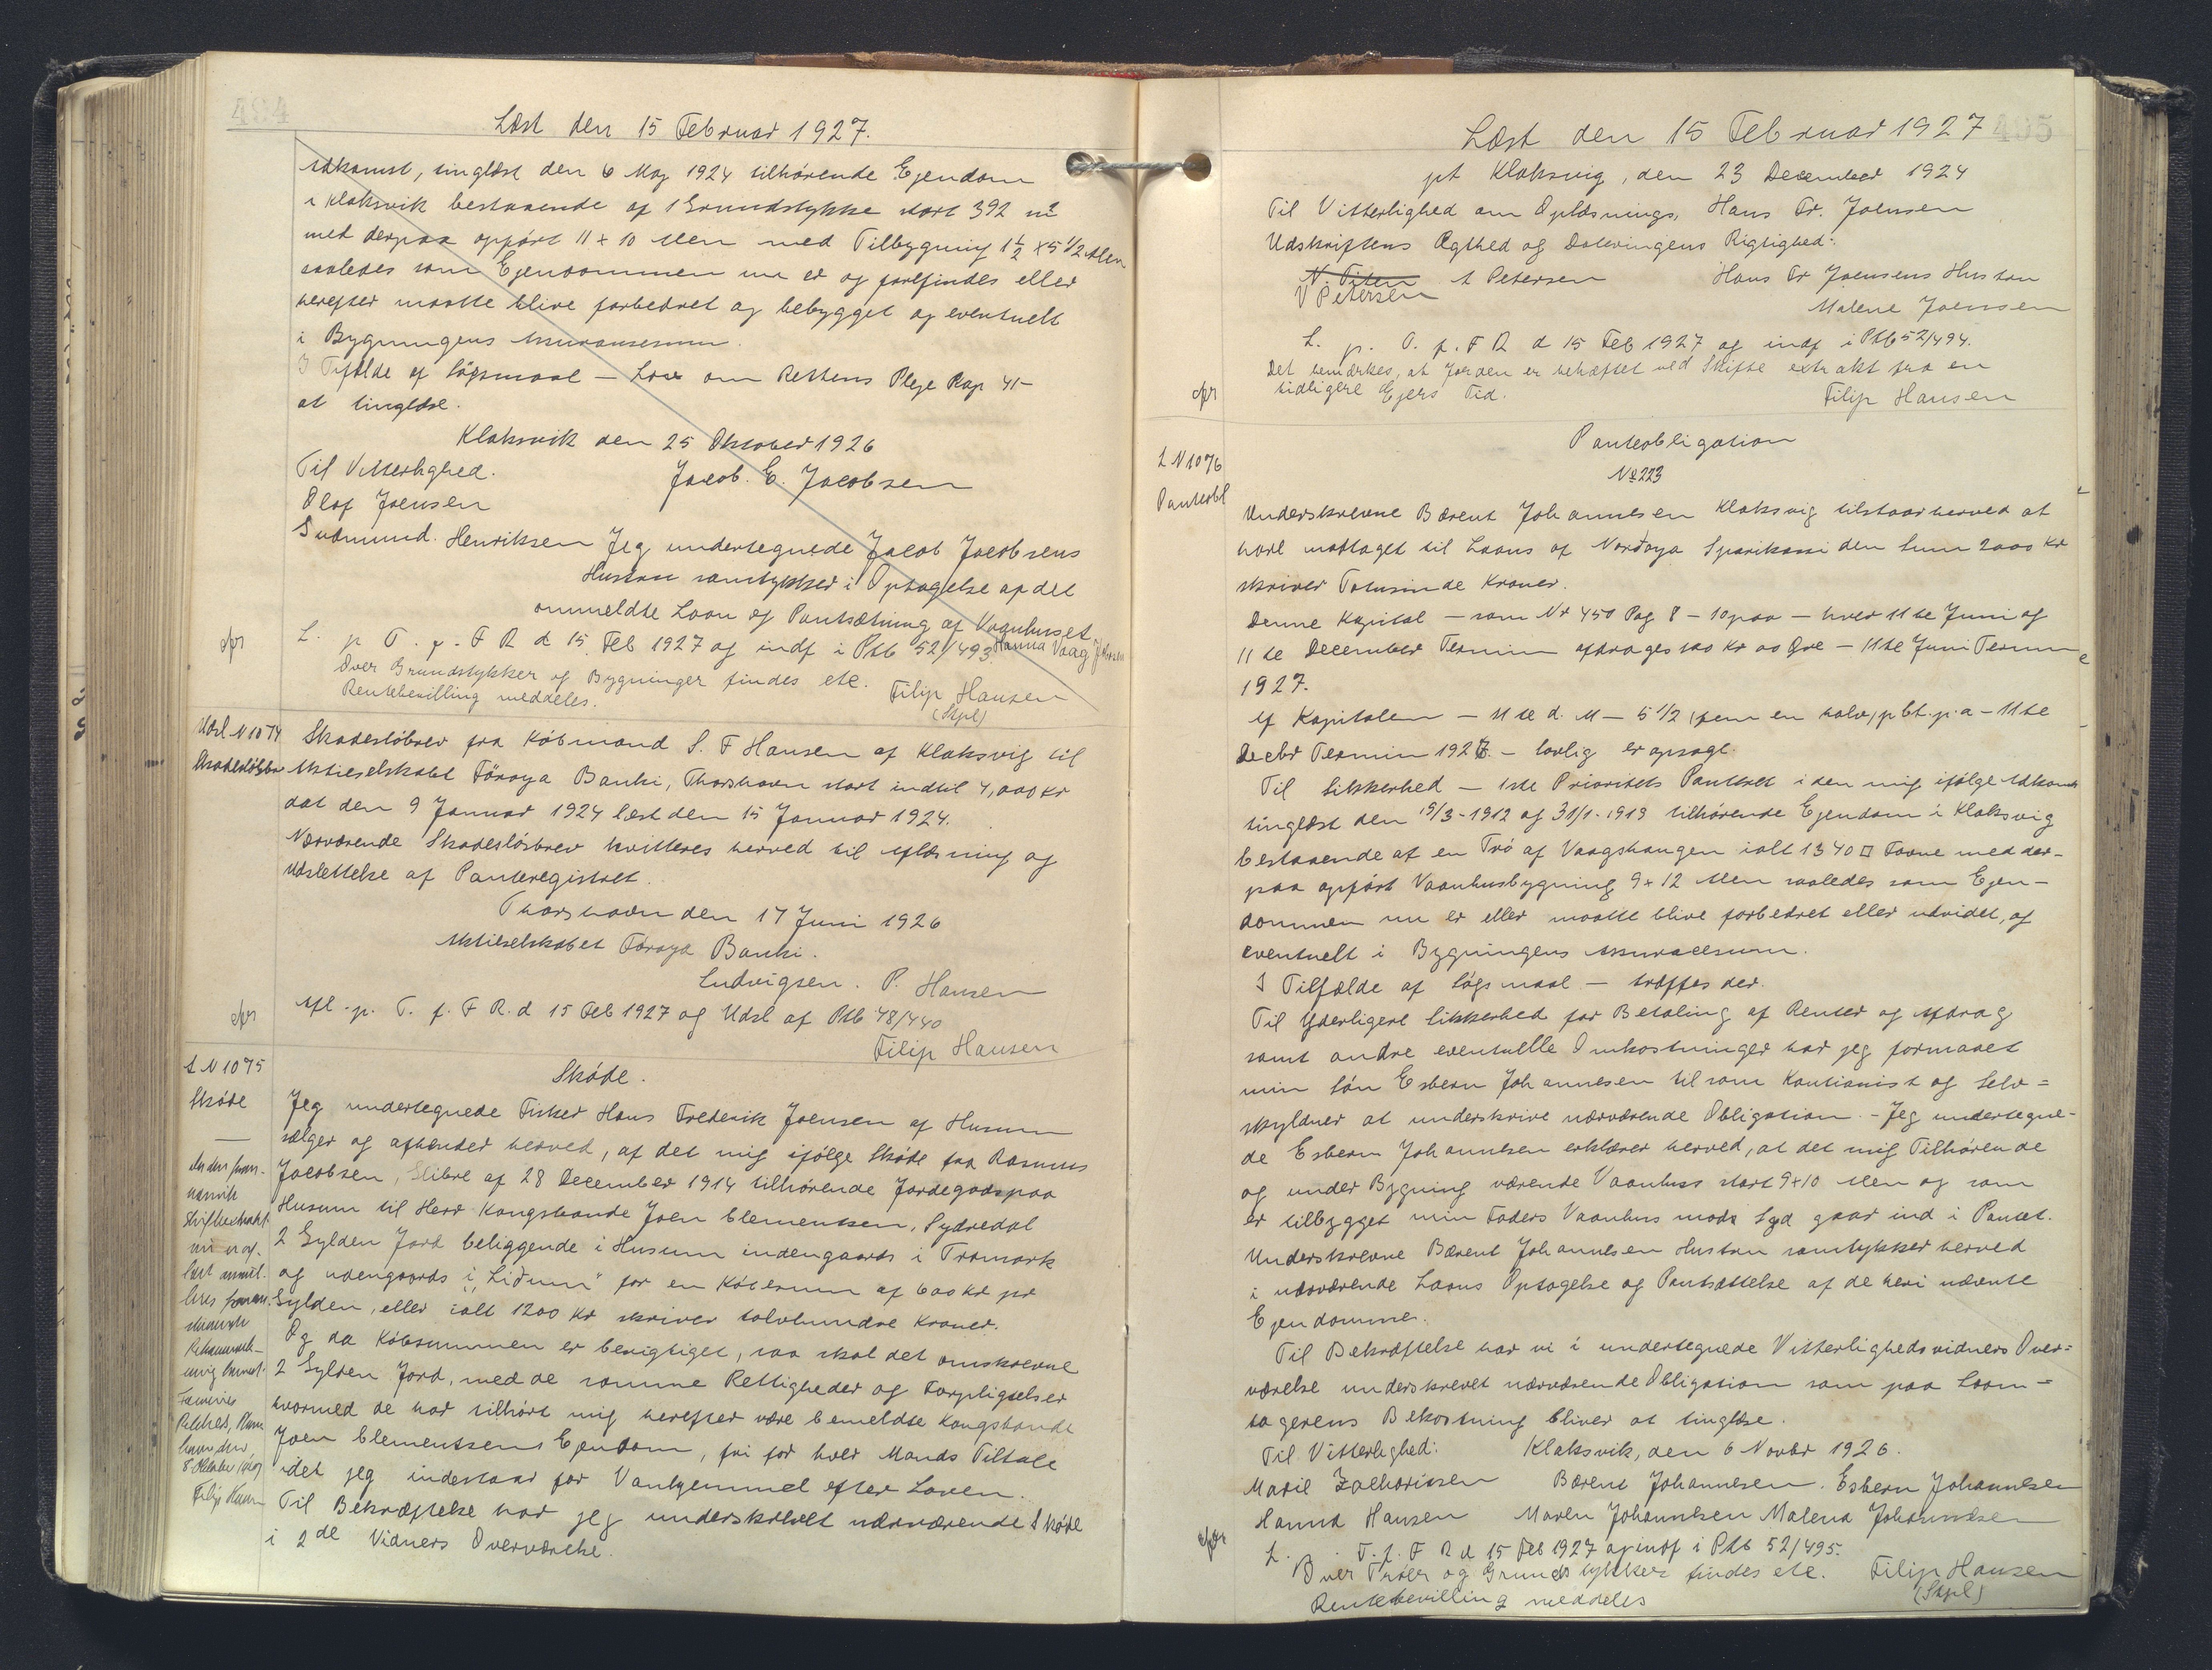 494
Læst den 15 Februar 1927.
Adkomst, tinglæst den 6 Maj 1924 tilhørende Ejendom
i Klaksvik bestaaende af 1 Grundstykke stort 392 m2
med derpaa opført 11 x 10 Alen med Tilbygning 1½ x 5 1/2 Alen
saaledes som Ejendommen nu er og forefindes eller
herefter maatte blive forbedret og bebygget og eventuelt
i Bygningens Assuransesum.
I Tifælde af Søgsmaal — Lov om Rettens Pleje Kap 41-
at tinglæse.
Klaksvik den 25 Oktober 1926
Til Vitterlighed.
Jacob. E. Jacobsen
Olaf Joensen
Guðmund. Henriksen
Jeg undertegnede Jacob Jacobsens
Hustru samtykker i Optagelse af det
ommeldte Laan og Pantsætning af Vaanhuset
Hanna Vaag
L. p T. f. F R d 15 Feb 1927 og indf i Ptb 52/493.
Over Grundstykker og Bygninger findes etc.
Rentebevilling meddeles.
Filip Hansen
(Stpl)
Udsl. N 1074
Skadesløsbrev
Skadesløsbrev fra Købmand S. F Hansen af Klaksvig til
Aktieselskabet Föroya Banki, Thorshavn stort indtil 4,000 Kr
dat den 9 Januar 1924 læst den 15 Januar 1924.
Nærværende Skadesløsbrev kvitteres herved til Aflæsning og
Udslettelse af Panteregistret.
Thorshavn den 17 Juni 1926
Aktieselskabet Føroya Banki.
Ludvigsen. P. Hansen
Afl. p. T. f. F R. d 15 Feb 1927 og Udsl af Ptb 48/440
Filip Hansen
L N 1075
Skøde
Skøde.
Jeg undertegnede Fisker Hans Frederik Joensen af Husum
sælger og afhænder herved, af det mig ifølge Skøde fra Rasmus
Jacobsen, Slibre af 28 December 1914 tilhørende Jordegods paa
Husum til Herr Kongsbonde Joen Clementsen, Sydredal
2 Gylden Jord beliggende i Husum indengaards i Tromark
og udengaards i "Liðum" for en Købesum af 600 Kr pr
Gylden, eller ialt 1200 Kr skriver tolvhundre Kroner.
Og da Købsummen er berigtiget, saa skal det omskrevne
2 Gylden Jord, med de samme Rettigheder og Forpligtelser
hvormed de har tilhørt mig herefter være bemeldte Kongsbonde
Joen Clementsens Ejendom, fri for hver Mands Tiltale
idet jeg indestaar for Vanhjemmel efter Loven.
Til Bekræftelse har jeg underskrevet nærværende Skøde
i 2de Vidners Overværelse.
8 Oktober
Filip Hansen
495
Læst den 15 Februar 1927
pt Klaksvig, den 23 December 1924
Til Vitterlighed om Oplæsnings, Hans Fr. Joensen
Udskriftens Ægthed og Dateringens Rigtighed:
V Petersen A Petersen Hans Fr Joensens Hustru
Malene Joensen
L. p. T. f. F R d 15 Feb 1927 og indf i Ptb 52/494.
Det bemærkes, at Jorden er behæftet ved Skifte extrakt fra en
tidligere Ejers Tid.
Filip Hansen
L N 1076
Panteobl
Panteobligation
№ 223
Underskrevne Bærent Johannesen Klaksvig tilstaar herved at
have modtaget til Laans af Norðoya Sparikassi den Sum 2000 Kr
skriver Totusinde Kroner.
Denne Kapital — som Nr 450 Pag 8 — 10 paa — hver 11te Juni og
11te December Termin afdrages 100 Kr 00 Øre — 11te Juni Termin
1927.
Af Kapitalen — 11te d. M — 5 1/2 (fem en halv) pCt. p. a — 11te
Decbr Termin 1926. — lovlig er opsagt.
Til Sikkerhed — 1ste Prioritets Panteret i den mig ifølge Adkomst
tinglæst den 19/3-1912 og 31/1-1919 tilhørende Ejendom i Klaksvig
bestaaende af en Trö af Vaagshaugen ialt 1340 □ Favne med der-
paa opført Vaanhusbygning 9 x 12 Alen saaledes som Ejen-
dommen nu er eller maatte blive forbedret eller udvidet, og
eventuelt i Bygningens Assuracesum.
I Tilfælde af Søgsmaal — træffes der.
Til Yderligere Sikkerhed for Betaling af Renter og Afdrag
samt andre eventuelle Omkostninger har jeg formaaet
min Søn Esbern Johannesen til som Kautionist og Selv=
skyldner at underskrive nærværende Obligation. - Jeg undertegne-
de Esbern Johannesen erklærer herved, at det mig Tilhørende
og under Bygning værende Vaanhus stort 9 x 10 Alen og som
er tilbygget min Faders Vaanhus mods Syd gaar ind i Pantet.
Underskrevne Bærent Johannesen Hustru samtykker herved
i nærværende Laans Optagelse og Pantsættelse af de heri nævnte
Ejendomme.
Til Bekræftelse har vi i undertegnede Vitterlighedsvidners Over=
værelse underskrevet nærværende Obligation som paa Laan=
tagerens Bekostning bliver at tinglæse.
Til Vitterlighed: Klaksvik, den 6 Novbr 1926.
Marie Zachariasen Bærent Johannesen. Esbern Johannesen
Hanna Hansen Maren Johannesen Malena Johannesen
L. T. f. F R d 15 Feb 1927 og indf i Ptb 52/495.
Over Trøer og Grundstykker findes etc.
Filip Hansen
(Stpl)
Rentebevilling meddeles